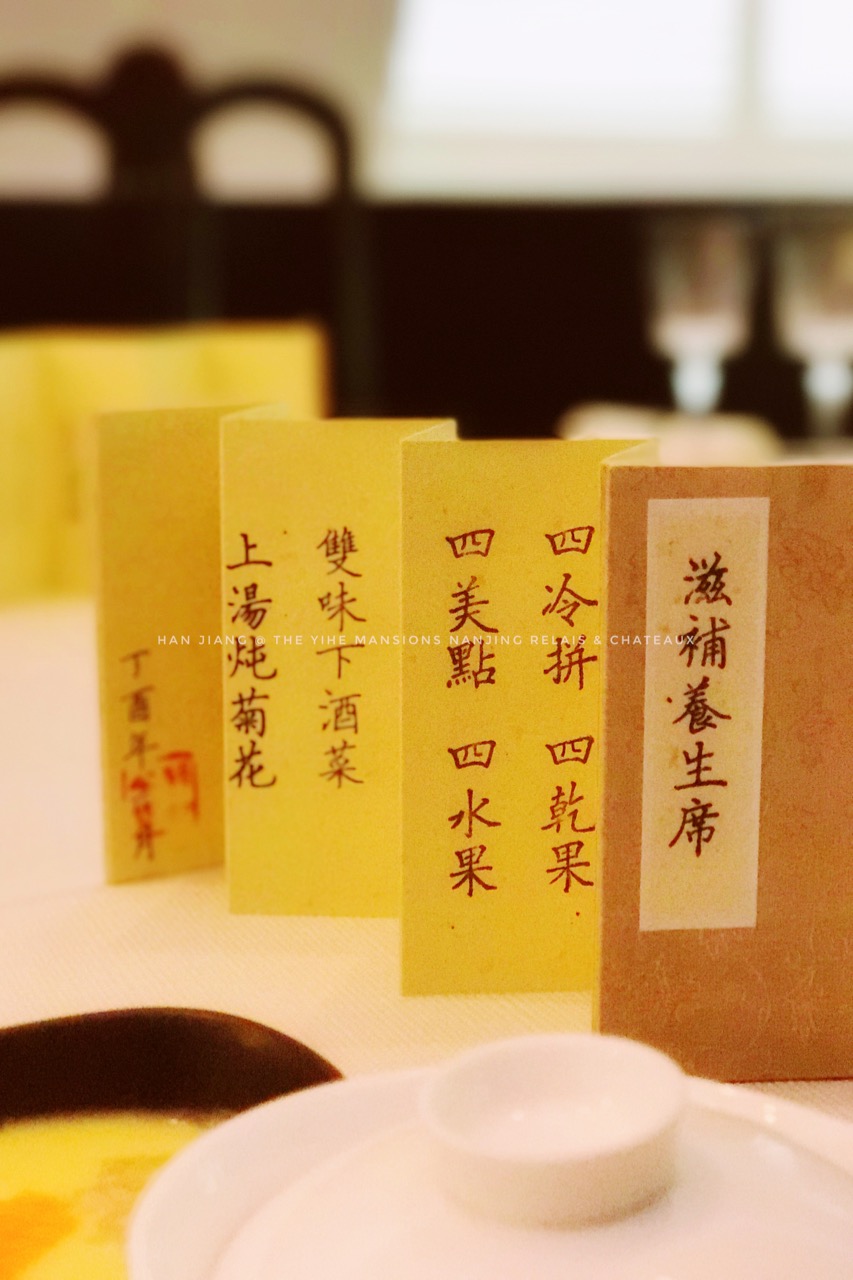 滋補養生席
四冷拼 四乾果
四美點 四水果
雙味下酒菜
上湯炖菊花
丁酉年
HAN JIANG @ THE YIHE MANSIONS NANJING RELAIS & CHATEAUX